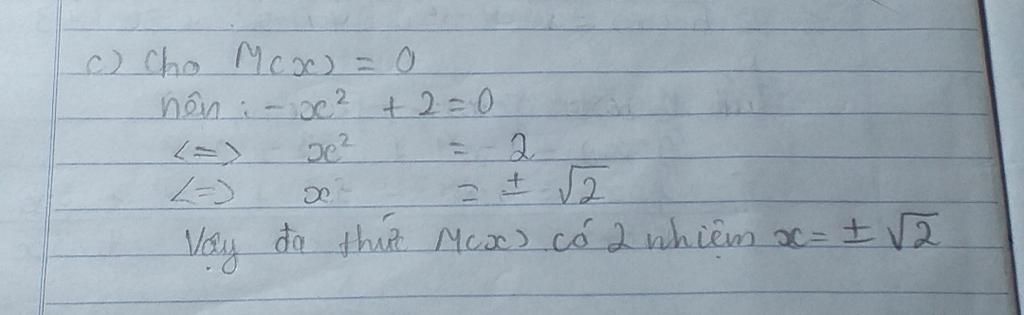 c) Cho M(x) = 0
nên : -x² + 2 = 0
<=> x² = 2
<=> x = ± √2
Vậy đa thức M(x) có 2 nhiệm x = ± √2